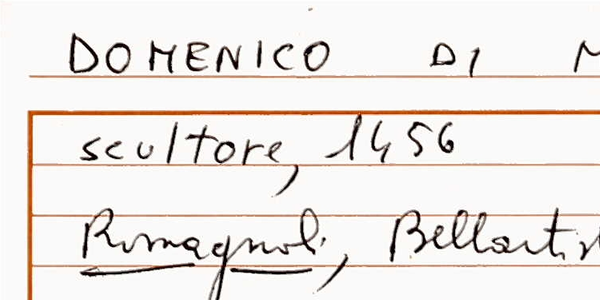 DOMENICO DI M
scultore, 1456
Romagnoli, Bellarti